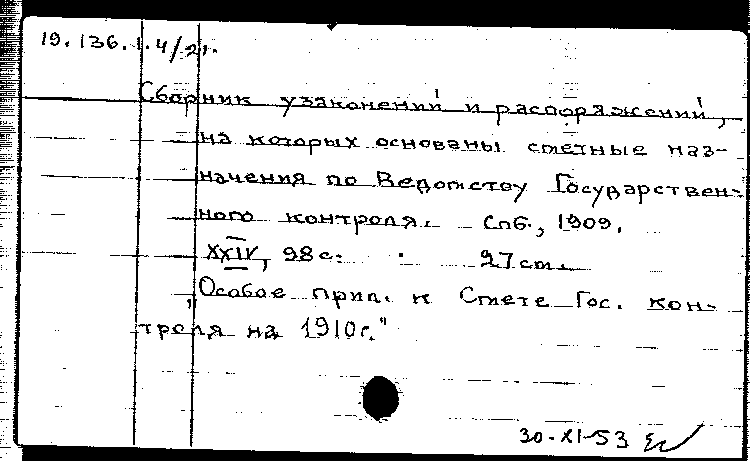 19.136.1.4/21.
Сборник узаконений и распоряжений,
на которых основаны сметные наз-
начения по Ведомству Государствен-
ного контроля. Спб., 1909.
XXIV, 98 с. 27 см.
"Особое прил. к Смете Гос. кон-
троля на 1910 г."
30-XI-53